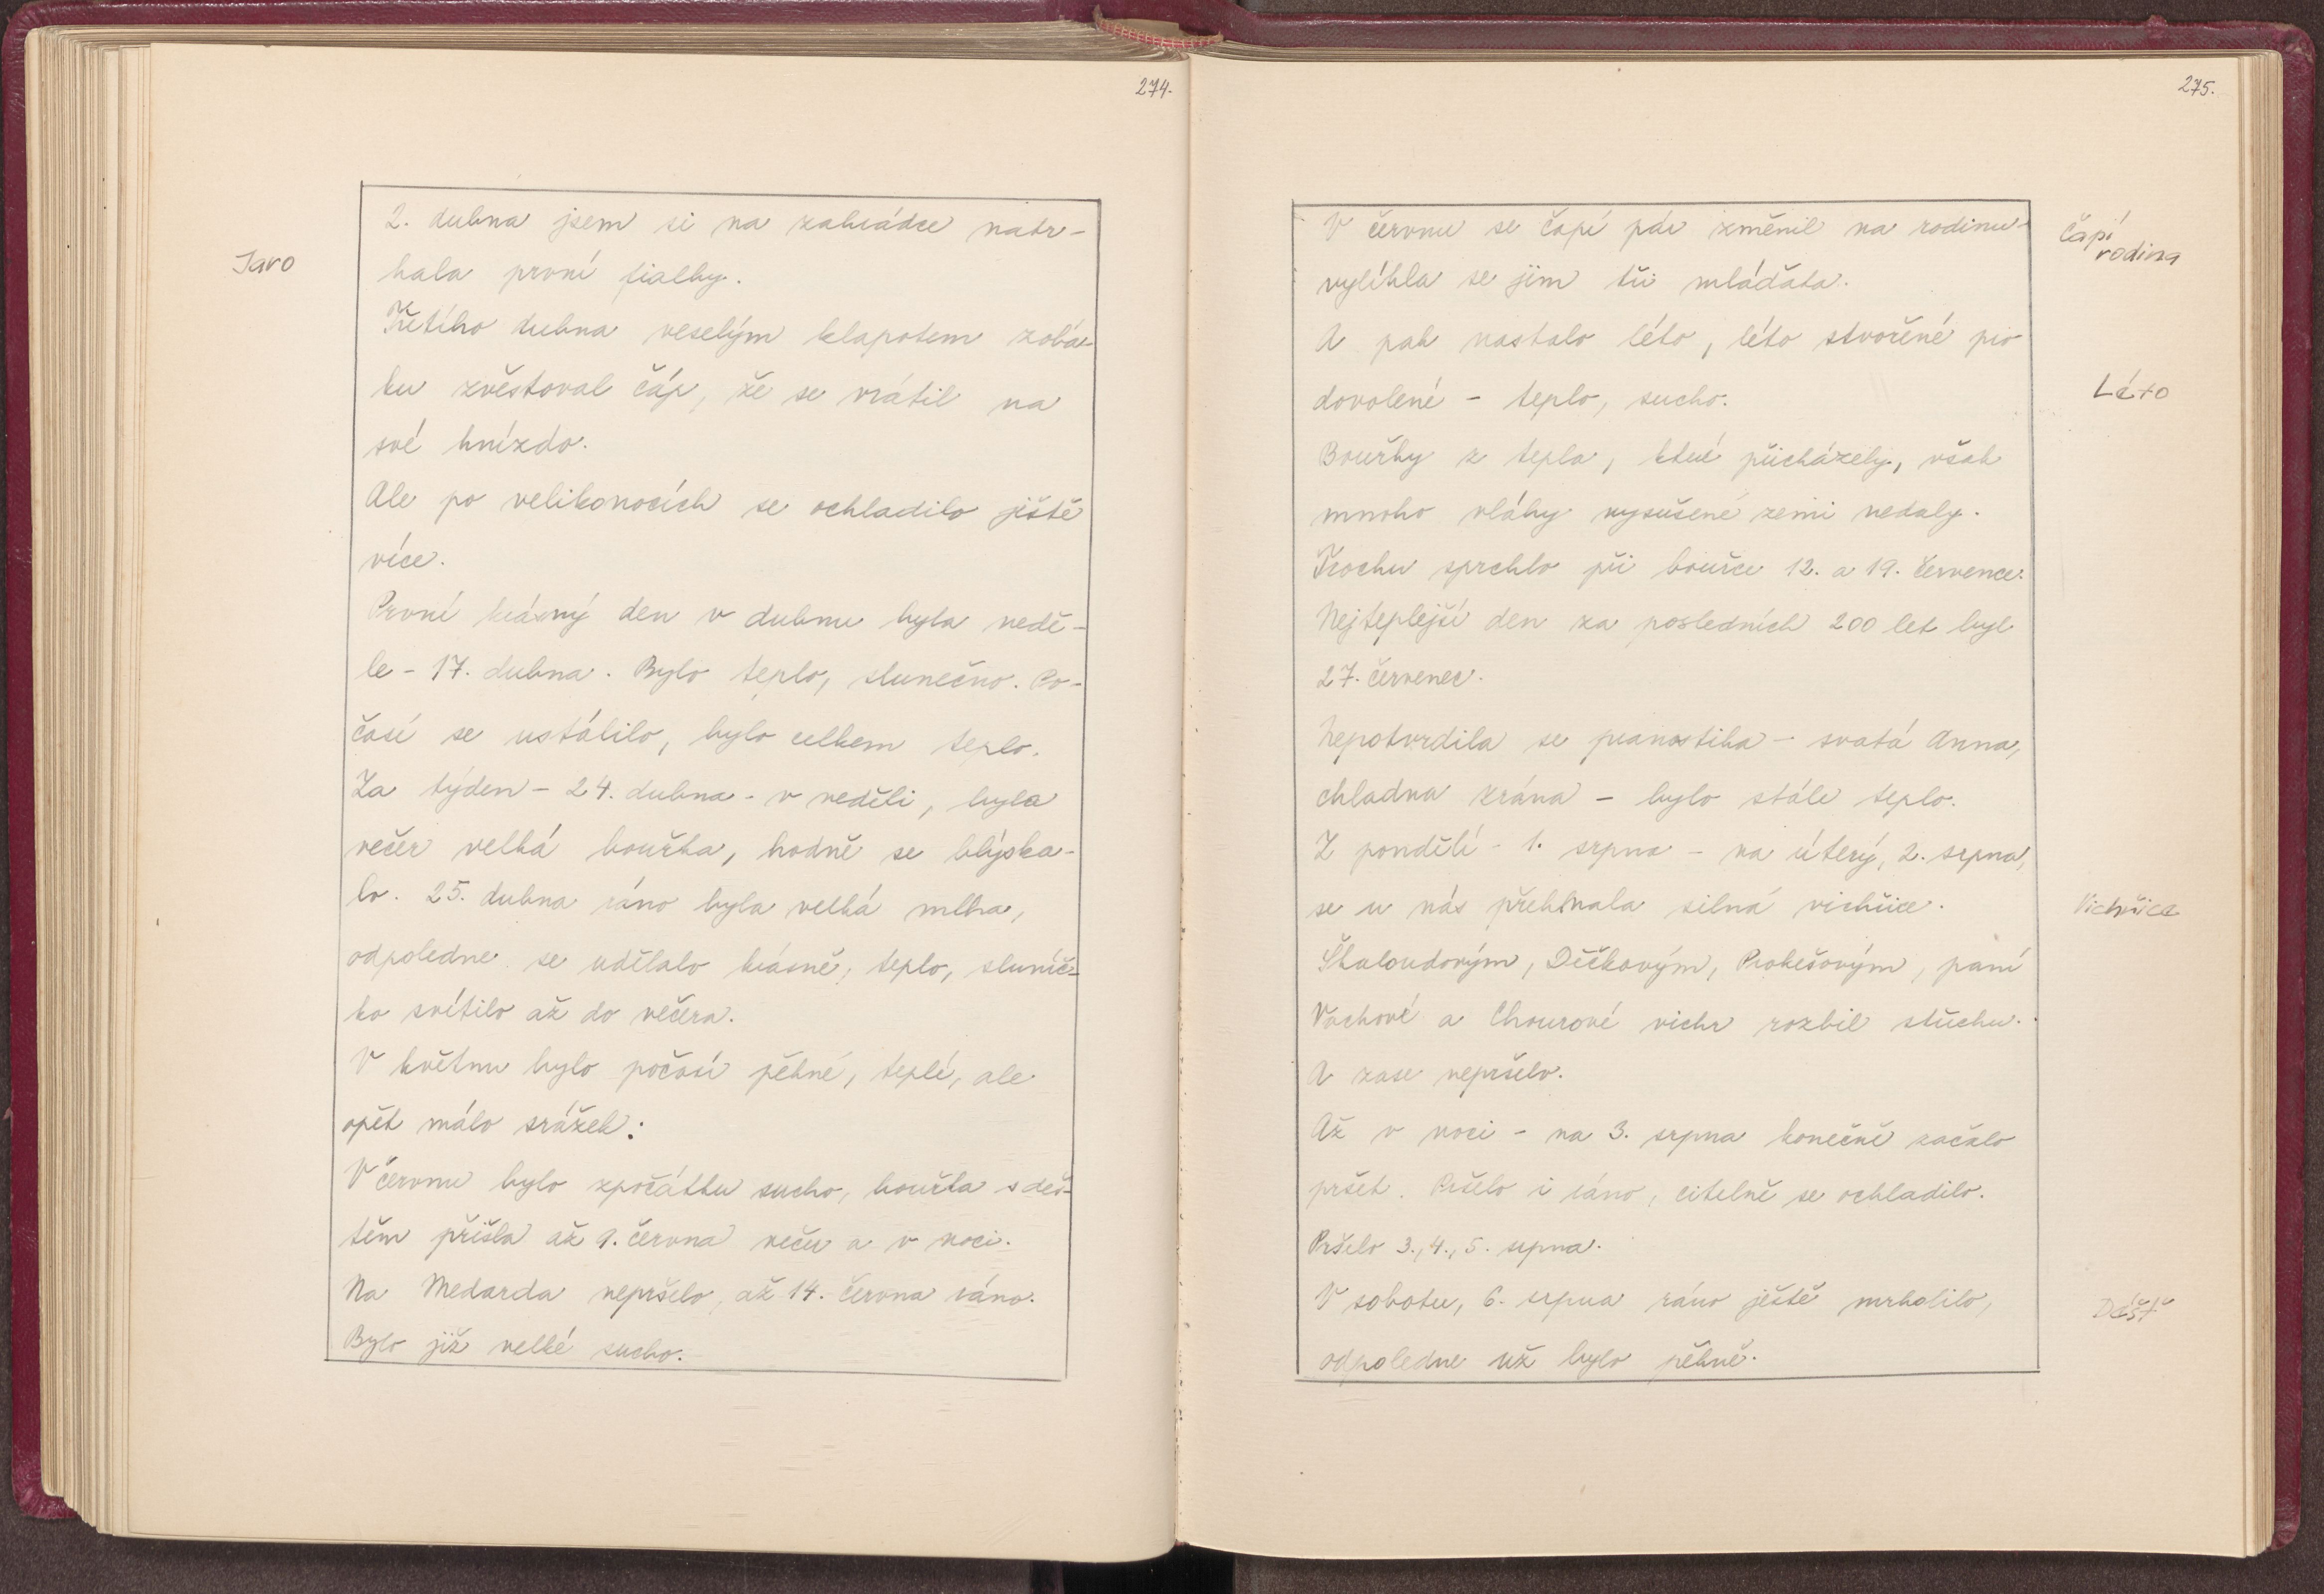 274.
Jaro
2. dubna jsem si na zahrádce natr-
hala první fialky.
Třetího dubna veselým klapotem zobá-
ku zvěstoval čáp, že se vrátil na
své hnízdo.
Ale po velikonocích se ochladilo ještě
více.
První krásný den v dubnu byla nedě-
le - 17. dubna. Bylo teplo, slunečno. Po-
časí se ustálilo, bylo celkem teplo.
Za týden - 24. dubna - v neděli, byla
večer velká bouřka, hodně se blýska-
lo. 25. dubna ráno byla velká mlha,
odpoledne se udělalo krásně, teplo, sluníč-
ko svítilo až do večera.
V květnu bylo počasí pěkné, teplé, ale
opět málo srážek.
V červnu bylo zpočátku sucho, bouřka s deš-
těm přišla až 9. června večer a v noci.
Na Medarda nepršelo, až 14. června ráno.
Bylo již velké sucho.
275.
V červnu se čapí pár změnil na rodinu -
vylíhla se jim tři mláďata.
A pak nastalo léto, léto stvořené pro
dovolené - teplo, sucho.
Bouřky z tepla, které přicházely, však
mnoho vláhy vysušené zemi nedaly.
Trochu sprchlo při bouřce 12. a 19. července.
Nejteplejší den za posledních 200 let byl
27. červenec.
Nepotvrdila se pranostika - svatá Anna,
chladna zrána - bylo stále teplo.
Z pondělí - 1. srpna - na úterý, 2. srpna,
se u nás přehnala silná vichřice.
Škaloudovým, Děčkovým, Prokešovým, paní
Vachové a Chourové vichr rozbil střechu.
A zase nepršelo.
Až v noci - na 3. srpna konečně začalo
pršet. Pršelo i ráno, citelně se ochladilo.
Pršelo 3., 4., 5. srpna.
V sobotu, 6. srpna ráno ještě mrholilo,
odpoledne už bylo pěkně.
Čapí
rodina
Léto
Vichřice
Déšť